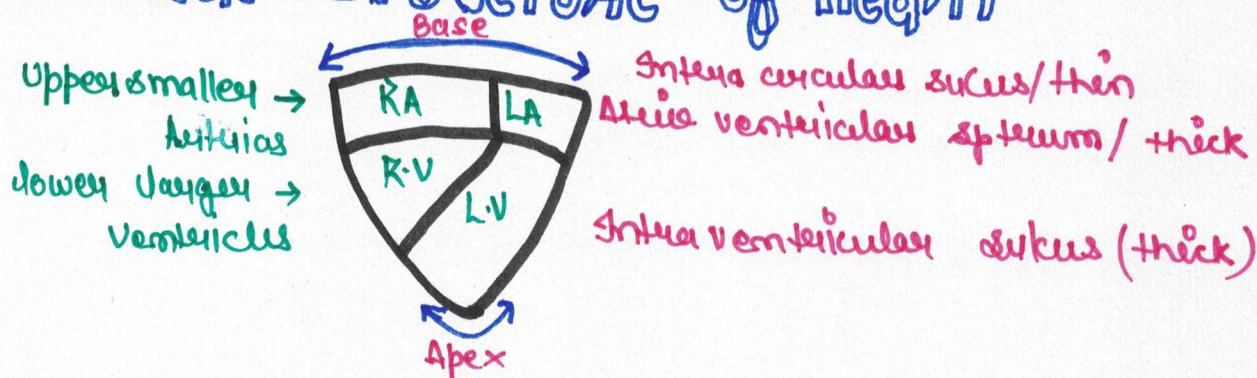 Structure of Heart
Base
Upper smaller →
Autrias
lower larger →
Ventricles
RA
LA
R.V
L.V
Intra circular sucus/thin
Atrio ventricular sptrum/ thick
Intra ventricular sukus (thick)
Apex